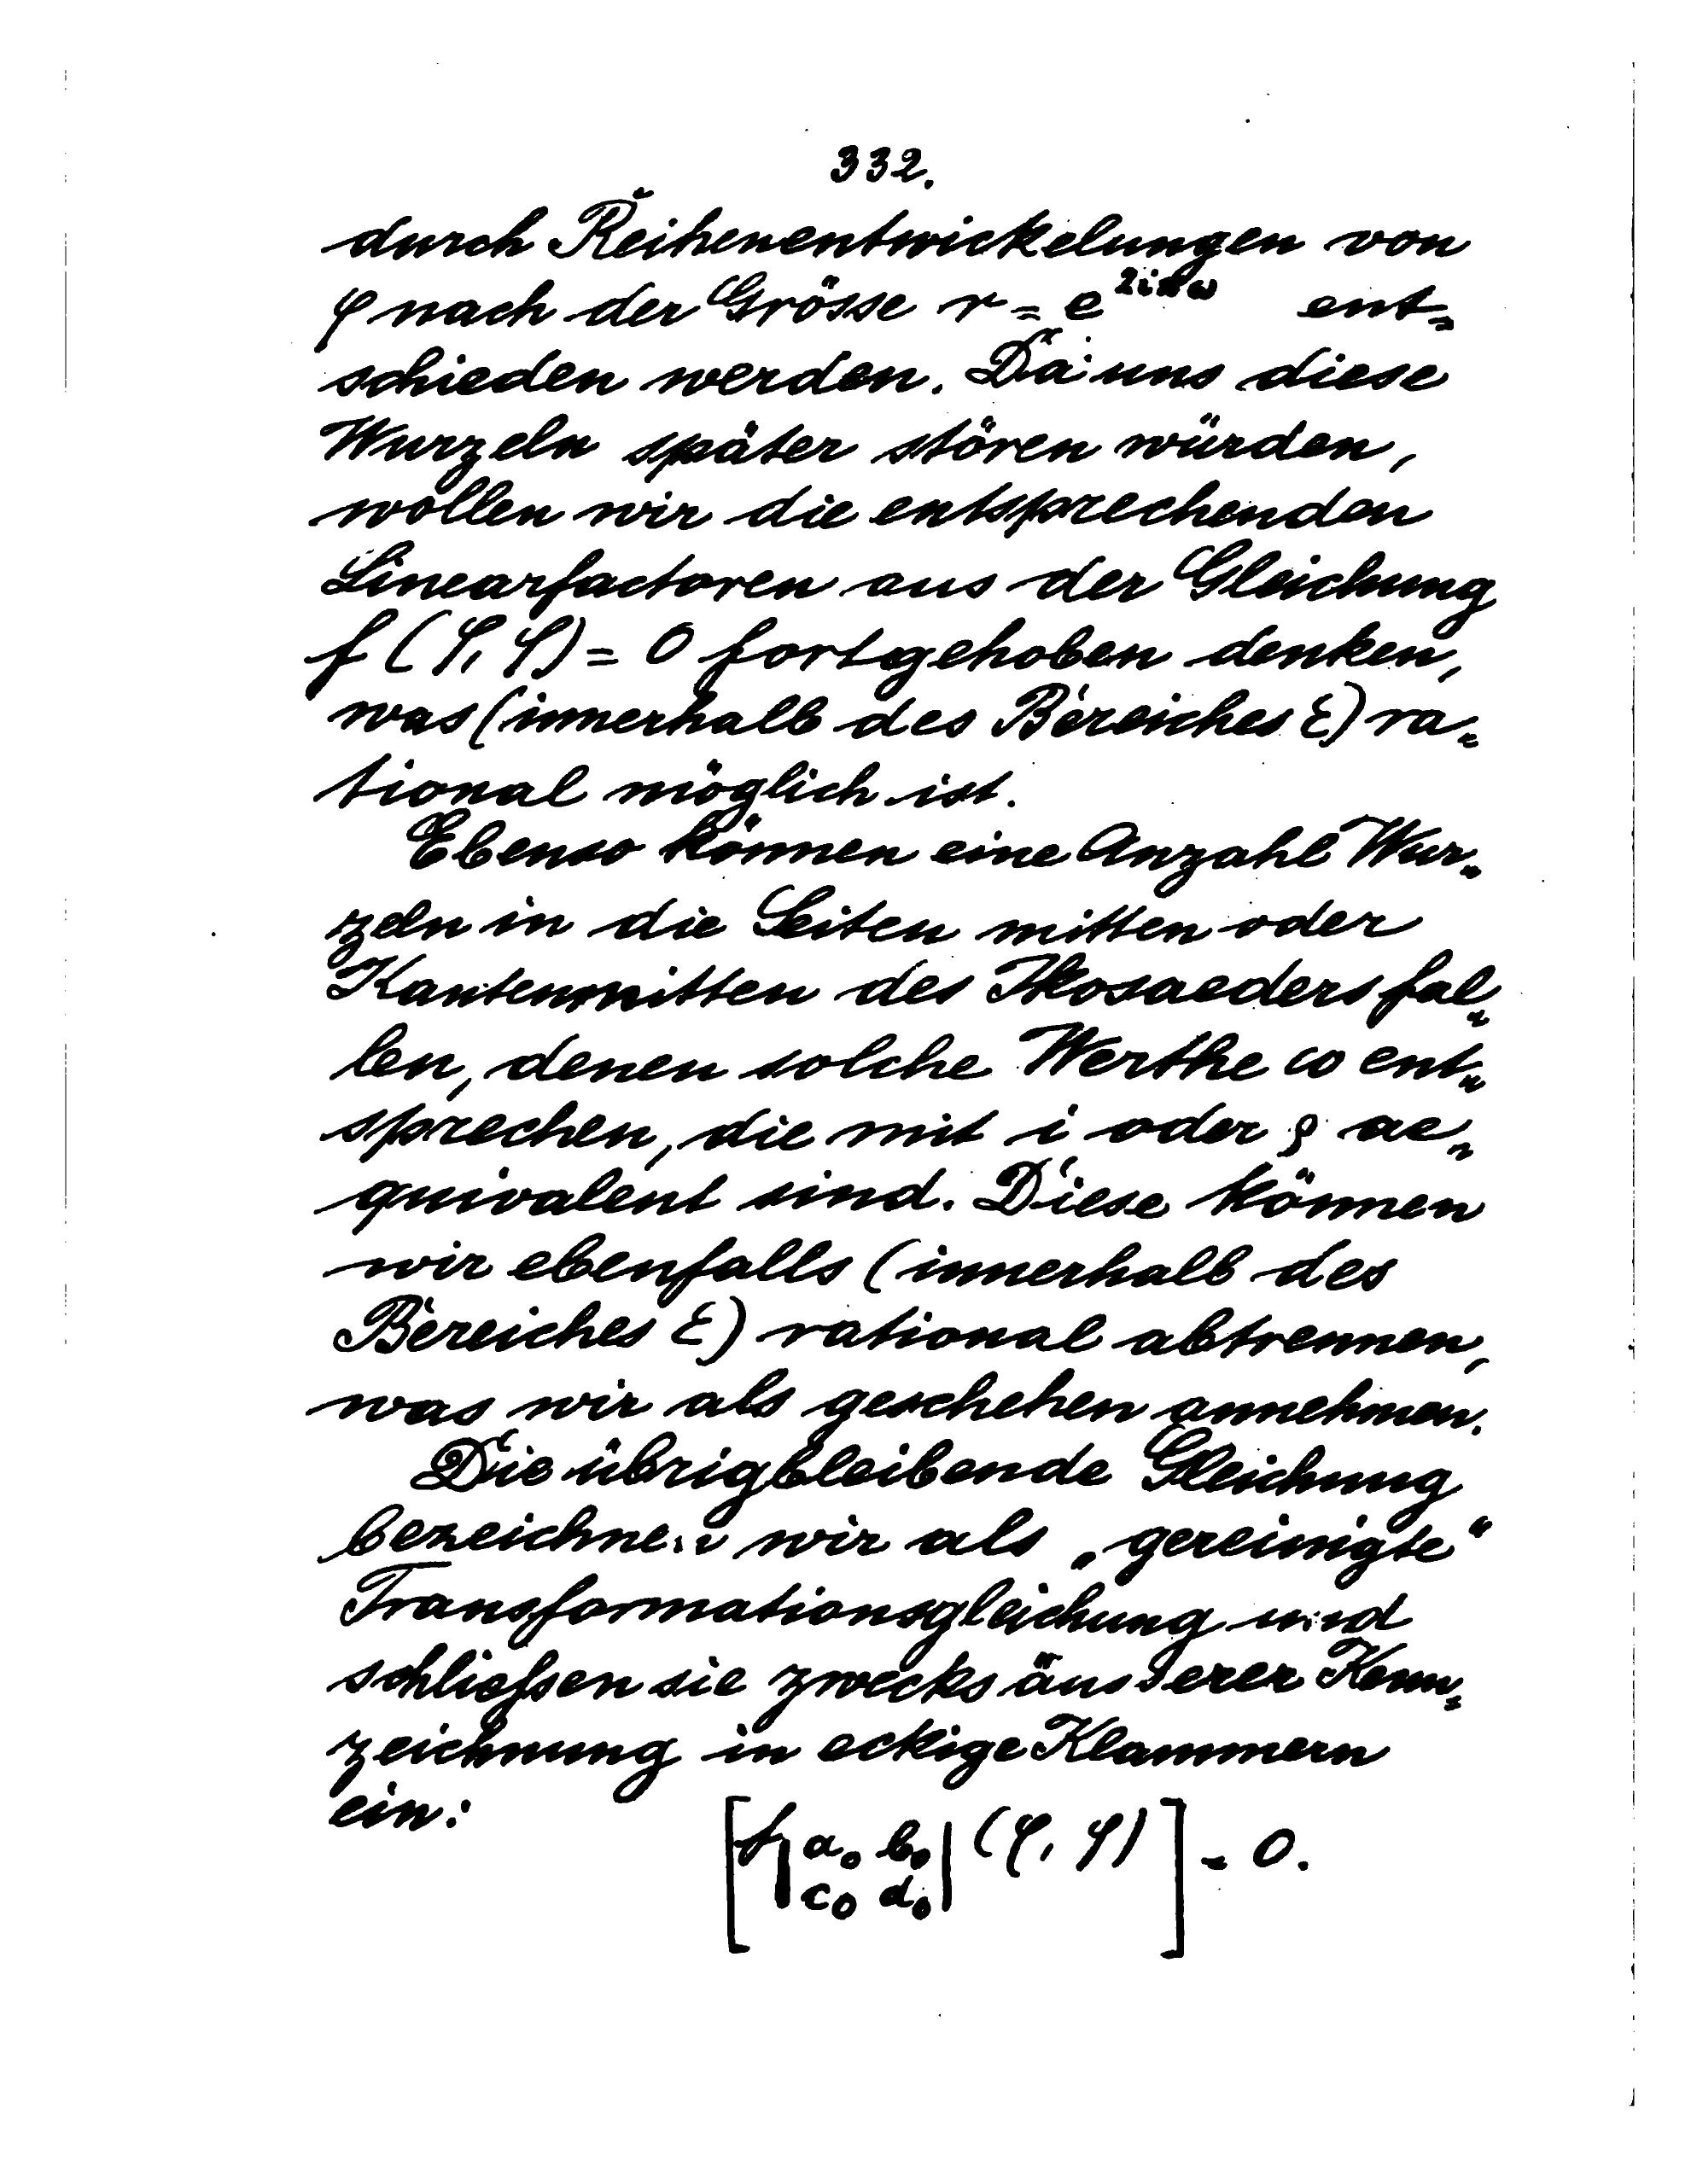 332.
durch Reihenentwickelungen von
φ nach der Grösse r = e^{2iπω} ent=
schieden werden. Da uns diese
Wurzeln später stören würden,
wollen wir die entsprechenden
Linearfactoren aus der Gleichung
f (φ, φ) = 0 fortgehoben denken,
was (innerhalb des Bereiches ε) ra=
tional möglich ist.
Ebenso können eine Anzahl Wur=
zeln in die Seiten mitten oder
Kantenmitten des Ikosaeders fal=
len, denen solche Werthe ω ent=
sprechen, die mit i oder ρ ae=
quivalent sind. Diese können
wir ebenfalls (innerhalb des
Bereiches ε) rational abtrennen,
was wir als geschehen annehmen.
Die übrigbleibende Gleichung
bezeichnen wir als „gereinigte“
Transformationsgleichung und
schließen sie zwecks äusserer Kenn=
zeichnung in eckige Klammern
ein:
[f|a₀ b₀| (φ, φ)] = 0.
c₀ d₀